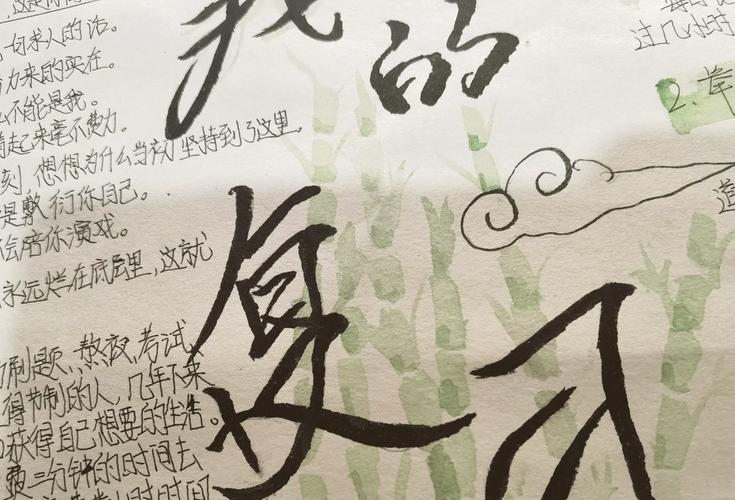 我的
复习
句求人的话。
力来的实在。
不能是我。
起来毫不费力。
刻,想想为什么当初坚持到了这里。
是敷衍你自己。
会陪你演戏。
永远烂在底层里,这就
刷题、熬夜、考试、
得节制的人,几年下来
获得自己想要的生活。
费三分钟的时间去
注几小时
2.